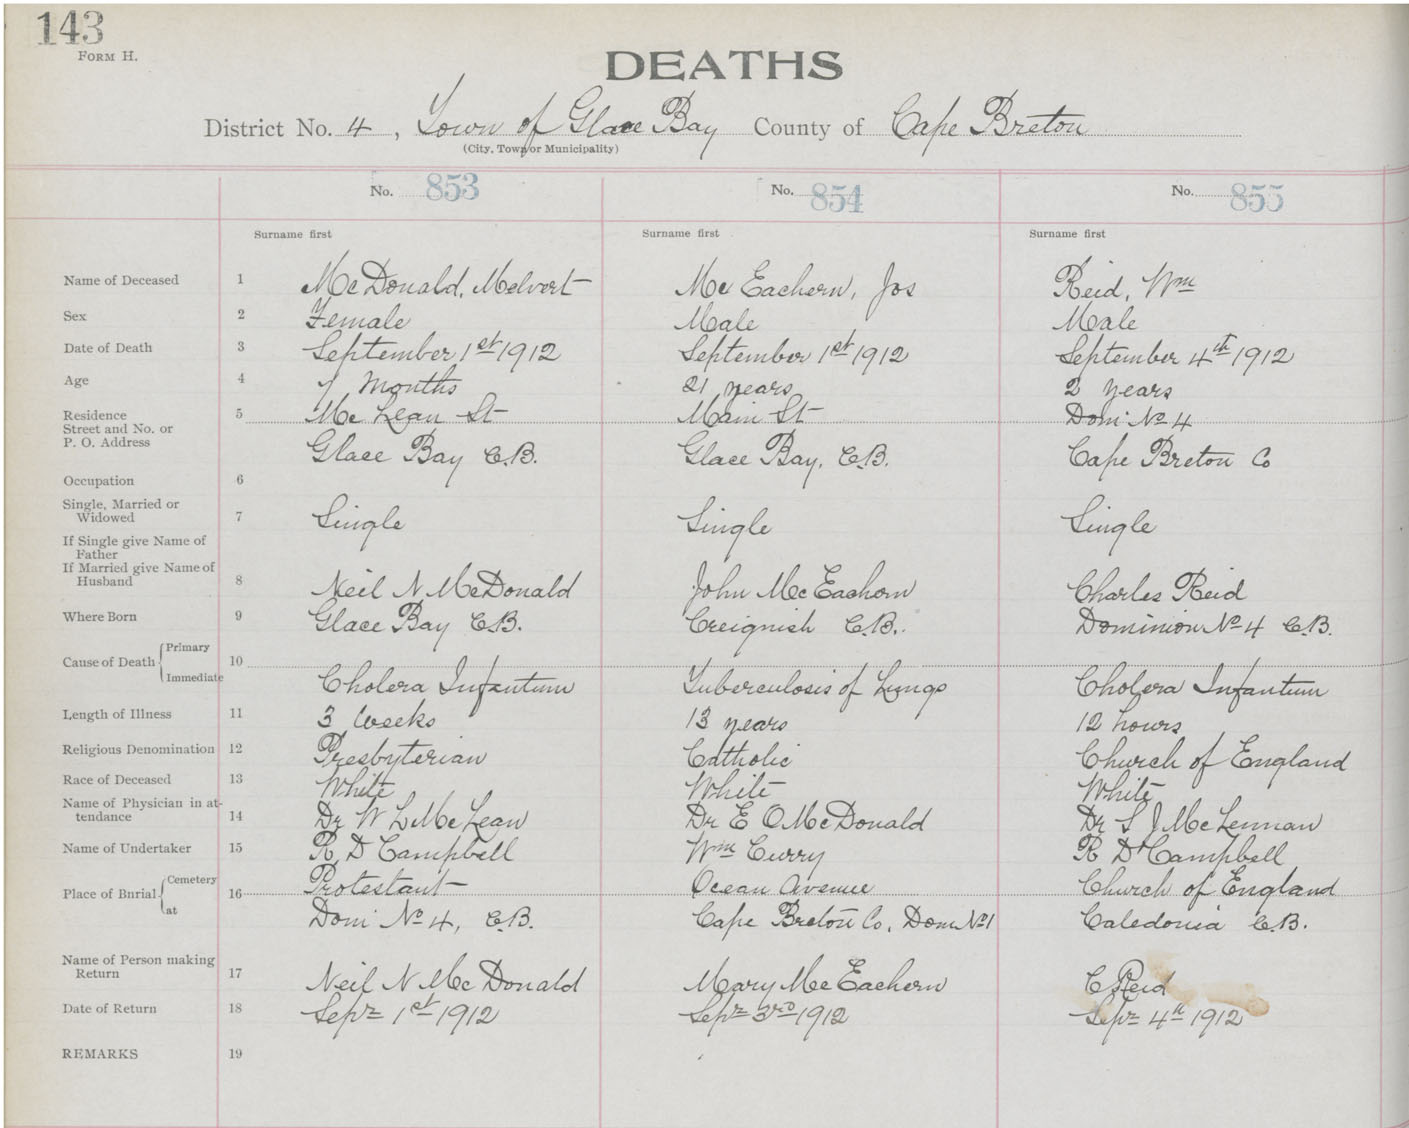 143
FORM H.
DEATHS
District No. 4, Town of Glace Bay County of Cape Breton
(City, Town or Municipality)
No. 853 No. 854 No. 855
Surname first Surname first Surname first
Name of Deceased 1 McDonald, Melvort McEachern, Jos Reid, Wm
Sex 2 Female Male Male
Date of Death 3 September 1st 1912 September 1st 1912 September 4th 1912
Age 4 7 Months 21 years 2 years
Residence 5 McLean St Main St Dom No 4
Street and No. or
P. O. Address Glace Bay C.B. Glace Bay, C.B. Cape Breton Co
Occupation 6
Single, Married or
Widowed 7 Single Single Single
If Single give Name of
Father
If Married give Name of
Husband 8 Neil N McDonald John McEachern Charles Reid
Where Born 9 Glace Bay C.B. Creignish C.B. Dominion No 4 C.B.
Primary
Cause of Death 10
Immediate Cholera Infantum Tuberculosis of Lungs Cholera Infantum
Length of Illness 11 3 Weeks 13 years 12 hours
Religious Denomination 12 Presbyterian Catholic Church of England
Race of Deceased 13 White White White
Name of Physician in at-
tendance 14 Dr W L McLean Dr E O McDonald Dr S J McLennan
Name of Undertaker 15 R D Campbell Wm Curry R D Campbell
Cemetery Protestant Ocean Avenue Church of England
Place of Bnrial 16
at Dom No 4, C.B. Cape Breton Co, Dom No 1 Caledonia C.B.
Name of Person making
Return 17 Neil N McDonald Mary McEachern C Reid
Date of Return 18 Sepr 1st 1912 Sepr 3rd 1912 Sepr 4th 1912
REMARKS 19